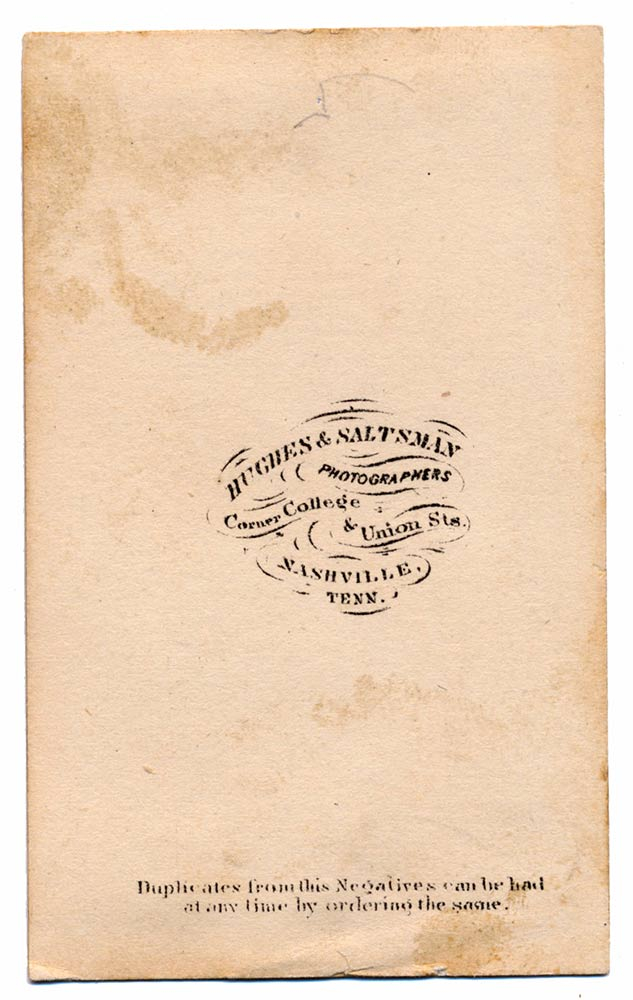 HUGHES & SALTSMAN
PHOTOGRAPHERS
Corner College
& Union Sts.
NASHVILLE,
TENN.
Duplicates from this Negatives can be had
at any time by ordering the same.